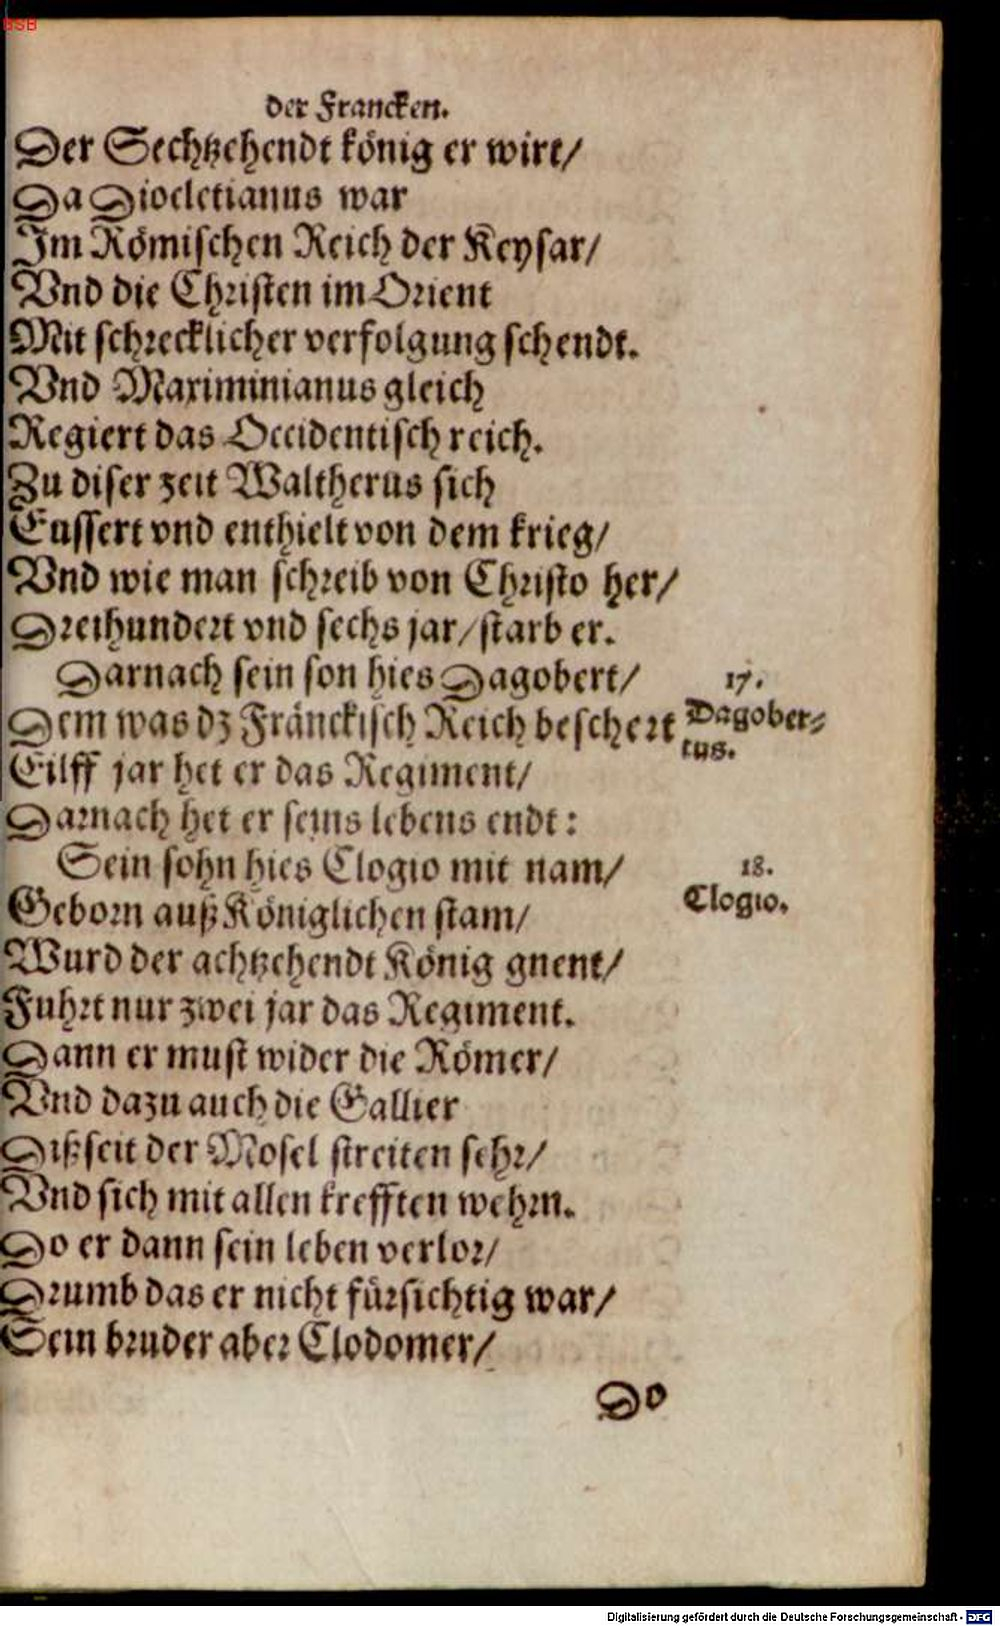 BSB
der Francken.
Der Sechtzehendt könig er wirt/
Da Diocletianus war
Im Römischen Reich der Keysar/
Vnd die Christen im Orient
Mit schrecklicher verfolgung schendt.
Vnd Maximinianus gleich
Regiert das Occidentisch reich.
Zu diser zeit Waltherus sich
Eussert vnd enthielt von dem krieg/
Vnd wie man schreib von Christo her/
Dreihundert vnd sechs jar/starb er.
Darnach sein son hies Dagobert/
17.
Dem was dz Fränckisch Reich beschert
Dagober-
tus.
Eilff jar het er das Regiment/
Darnach het er seins lebens endt:
Sein sohn hies Clogio mit nam/
18.
Clogio.
Geborn auß Königlichen stam/
Wurd der achtzehendt König gnent/
Fuhrt nur zwei jar das Regiment.
Dann er must wider die Römer/
Vnd dazu auch die Gallier
Dißseit der Mosel streiten sehr/
Vnd sich mit allen krefften wehrn.
Do er dann sein leben verlor/
Drumb das er nicht fürsichtig war/
Sein bruder aber Clodomer/
Do
Digitalisierung gefördert durch die Deutsche Forschungsgemeinschaft - DFG